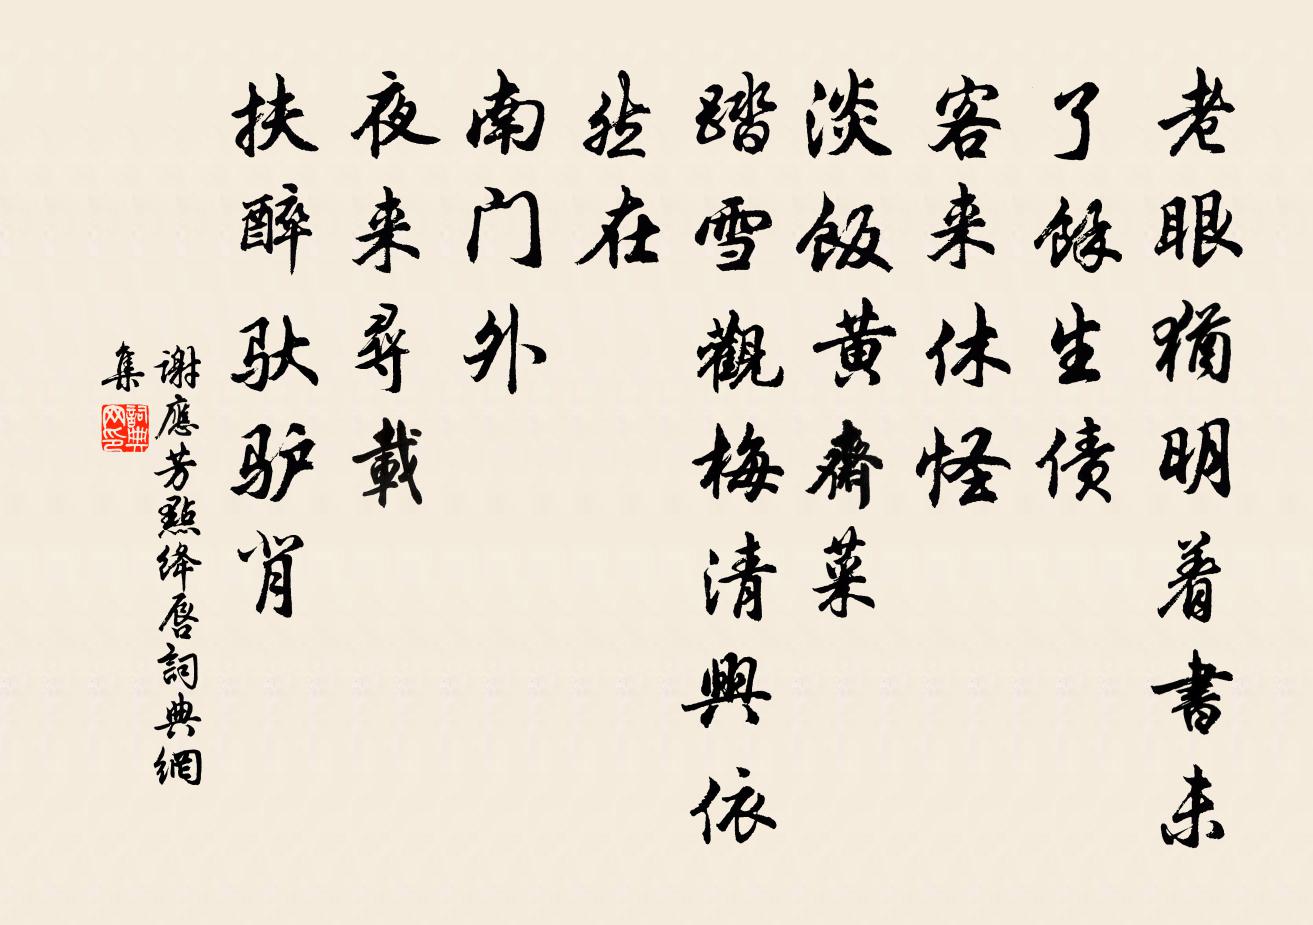 老眼猶明着書未
了餘生债
客来休怪
淡飯黄齋菜
踏雪觀梅清興依
然在
南门外
夜来尋載
扶醉驮驴背
謝應芳點绛唇詞典網
集
詞典
网印